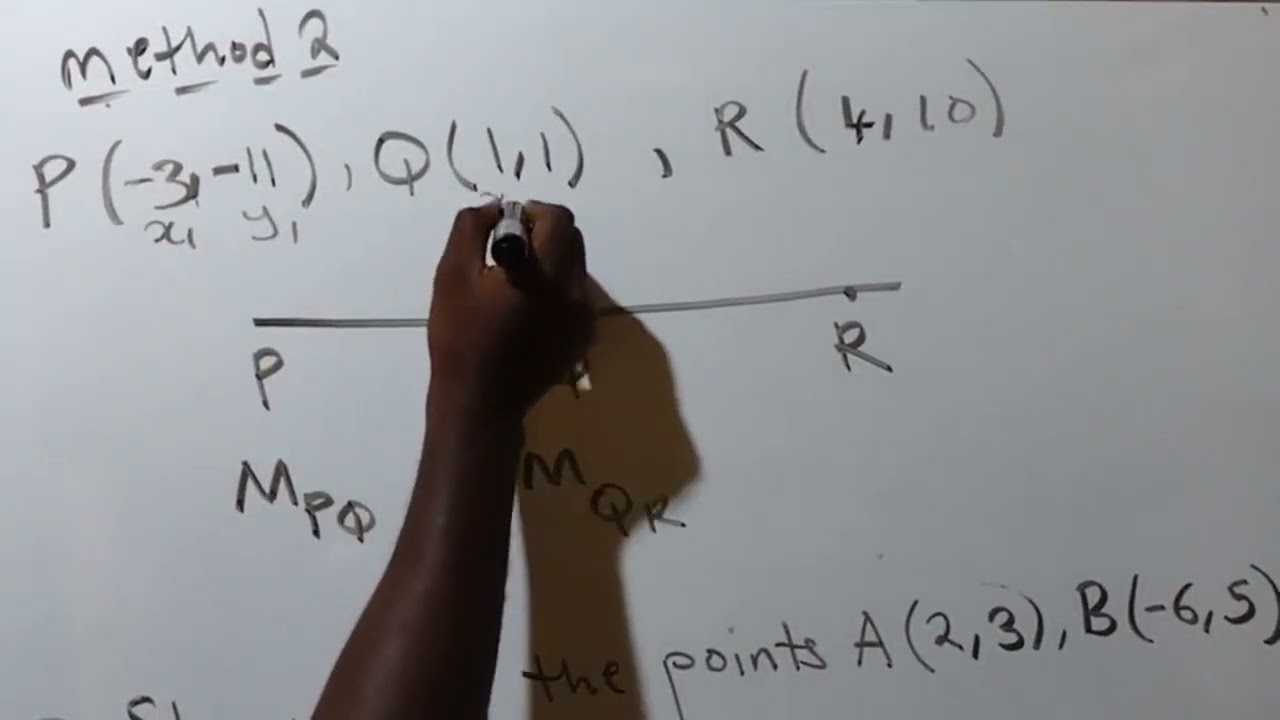 method 2
P(-3, -11), Q(1,1), R(4,10)
x₁ y₁
P R
M_PQ M_QR
the points A(2,3), B(-6,5)